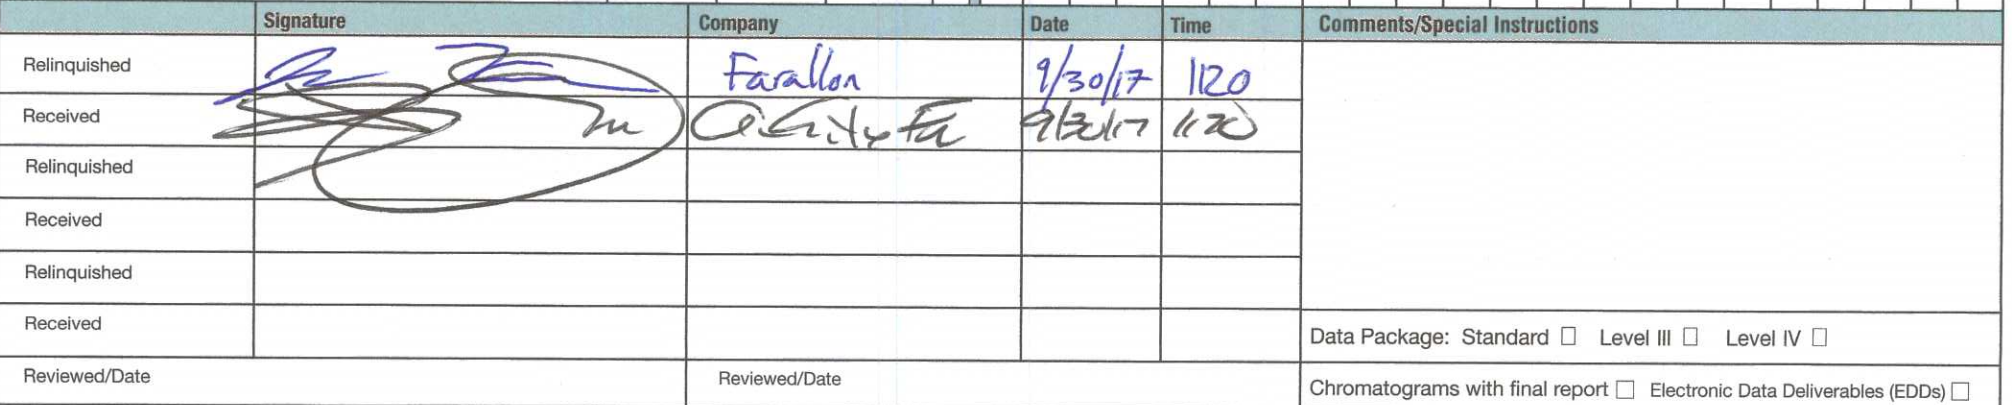 Signature Company Date Time Comments/Special Instructions
Relinquished Farallon 9/30/17 1120
Received 9/30/17 1120
Relinquished
Received
Relinquished
Received
Data Package: Standard ☐ Level III ☐ Level IV ☐
Reviewed/Date Reviewed/Date
Chromatograms with final report ☐ Electronic Data Deliverables (EDDs) ☐